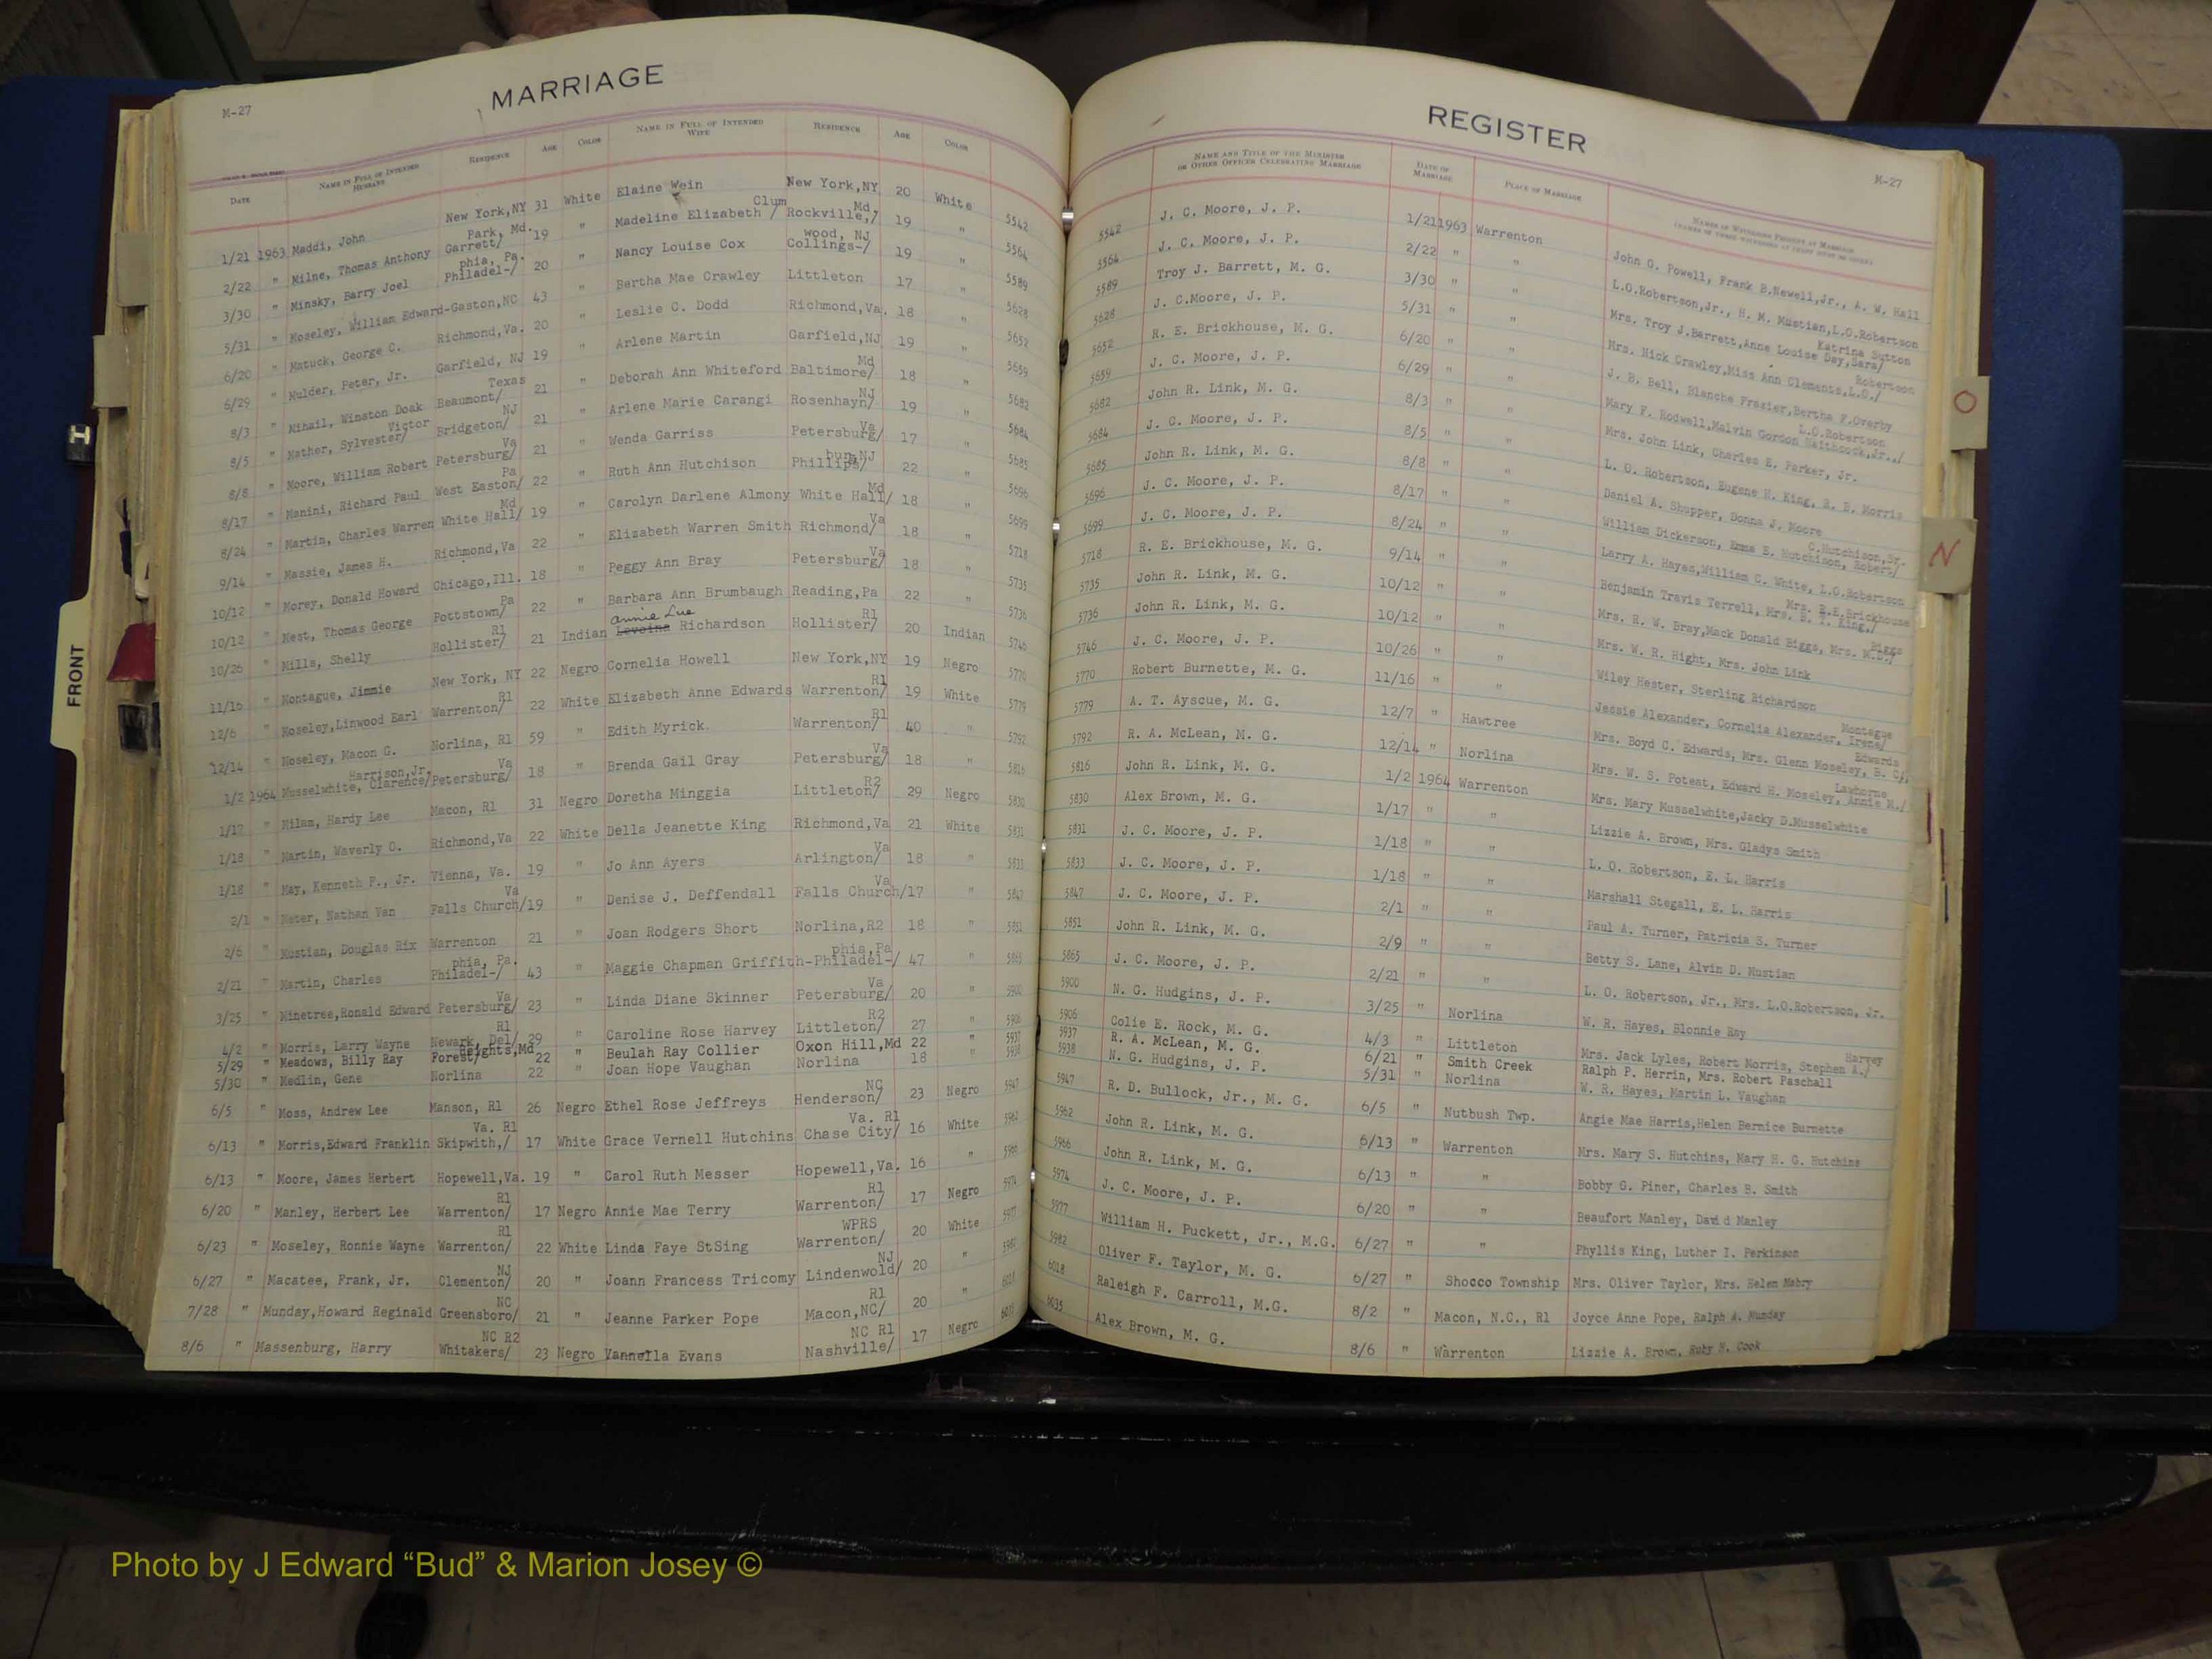 MARRIAGE
M-27
DATE NAME IN FULL OF INTENDED HUSBAND RESIDENCE AGE COLOR NAME IN FULL OF INTENDED WIFE RESIDENCE AGE COLOR
1/21 1963 Maddi, John New York,NY 31 White Elaine Wein New York,NY 20 White 5542
2/22 " Milne, Thomas Anthony Garrett/ Park, Md. 19 " Madeline Elizabeth / Clum Rockville,/ Md 19 " 5564
3/30 " Minsky, Barry Joel Philadel-/ phia, Pa. 20 " Nancy Louise Cox Collings-/ wood, NJ 19 " 5589
5/31 " Moseley, William Edward-Gaston,NC 43 " Bertha Mae Crawley Littleton 17 " 5628
6/20 " Matuck, George C. Richmond,Va. 20 " Leslie C. Dodd Richmond,Va. 18 " 5652
6/29 " Mulder, Peter, Jr. Garfield, NJ 19 " Arlene Martin Garfield,NJ 19 " 5659
8/3 " Mihail, Winston Doak Beaumont/ Texas 21 " Deborah Ann Whiteford Baltimore/ Md 18 " 5682
8/5 " Mather, Sylvester/ Victor Bridgeton/ NJ 21 " Arlene Marie Carangi Rosenhayn/ NJ 19 " 5684
8/8 " Moore, William Robert Petersburg/ Va 21 " Wenda Garriss Petersburg/ Va 17 " 5685
8/17 " Manini, Richard Paul West Easton/ Pa 22 " Ruth Ann Hutchison Phillips/ burg,NJ 22 " 5696
8/24 " Martin, Charles Warren White Hall/ Md 19 " Carolyn Darlene Almony White Hall/ Md 18 " 5699
9/14 " Massie, James H. Richmond,Va 22 " Elizabeth Warren Smith Richmond/ Va 18 " 5718
10/12 " Morey, Donald Howard Chicago,Ill. 18 " Peggy Ann Bray Petersburg/ Va 18 " 5735
10/12 " Mest, Thomas George Pottstown/ Pa 22 " Barbara Ann Brumbaugh Reading,Pa 22 " 5736
10/26 " Mills, Shelly Hollister/ R1 21 Indian Annie Lue Richardson Hollister/ R1 20 Indian 5746
11/16 " Montague, Jimmie New York, NY 22 Negro Cornelia Howell New York,NY 19 Negro 5770
12/6 " Moseley,Linwood Earl Warrenton/ R1 22 White Elizabeth Anne Edwards Warrenton/ R1 19 White 5779
12/14 " Moseley, Macon G. Norlina, R1 59 " Edith Myrick Warrenton/ R1 40 " 5792
1/2 1964 Musselwhite, Clarence/ Harrison,Jr. Petersburg/ Va 18 " Brenda Gail Gray Petersburg/ Va 18 " 5816
1/17 " Milam, Hardy Lee Macon, R1 31 Negro Doretha Minggia Littleton/ R2 29 Negro 5830
1/18 " Martin, Waverly O. Richmond,Va 22 White Della Jeanette King Richmond,Va 21 White 5831
1/18 " May, Kenneth F., Jr. Vienna, Va. 19 " Jo Ann Ayers Arlington/ Va 18 " 5833
2/1 " Meter, Nathan Van Falls Church/ Va 19 " Denise J. Deffendall Falls Church/ Va 17 " 5847
2/6 " Mustian, Douglas Rix Warrenton 21 " Joan Rodgers Short Norlina,R2 18 " 5851
2/21 " Martin, Charles Philadel-/ phia, Pa. 43 " Maggie Chapman Griffith-Philadel-/ phia,Pa 47 " 5865
3/25 " Minetree,Ronald Edward Petersburg/ Va 23 " Linda Diane Skinner Petersburg/ Va 20 " 5900
4/2 " Morris, Larry Wayne Newark, Del/ R1 29 " Caroline Rose Harvey Littleton/ R2 27 " 5906
5/29 " Meadows, Billy Ray Forest/ Heights,Md 22 " Beulah Ray Collier Oxon Hill,Md 22 " 5937
5/30 " Medlin, Gene Norlina 22 " Joan Hope Vaughan Norlina 18 " 5938
6/5 " Moss, Andrew Lee Manson, R1 26 Negro Ethel Rose Jeffreys Henderson/ NC 23 Negro 5947
6/13 " Morris,Edward Franklin Skipwith,/ Va. R1 17 White Grace Vernell Hutchins Chase City/ Va. R1 16 White 5962
6/13 " Moore, James Herbert Hopewell,Va. 19 " Carol Ruth Messer Hopewell,Va. 16 " 5966
6/20 " Manley, Herbert Lee Warrenton/ R1 17 Negro Annie Mae Terry Warrenton/ R1 17 Negro 5974
6/23 " Moseley, Ronnie Wayne Warrenton/ R1 22 White Linda Faye StSing Warrenton/ WPRS 20 White 5977
6/27 " Macatee, Frank, Jr. Clementon/ NJ 20 " Joann Francess Tricomy Lindenwold/ NJ 20 " 5982
7/28 " Munday,Howard Reginald Greensboro/ NC 21 " Jeanne Parker Pope Macon,NC/ R1 20 " 6018
8/6 " Massenburg, Harry Whitakers/ NC R2 23 Negro Vannella Evans Nashville/ NC R1 17 Negro 6035
REGISTER
M-27
NAME AND TITLE OF THE MINISTER OR OTHER OFFICER CELEBRATING MARRIAGE DATE OF MARRIAGE PLACE OF MARRIAGE NAMES OF WITNESSES PRESENT AT MARRIAGE
5542 J. C. Moore, J. P. 1/21 1963 Warrenton John G. Powell, Frank B.Newell,Jr., A. W. Hall
5564 J. C. Moore, J. P. 2/22 " " L.O.Robertson,Jr., H. M. Mustian,L.O.Robertson
5589 Troy J. Barrett, M. G. 3/30 " " Mrs. Troy J.Barrett,Anne Louise Day,Sara/ Katrina Sutton
5628 J. C.Moore, J. P. 5/31 " " Mrs. Nick Crawley,Miss Ann Clements,L.O./ Robertson
5652 R. E. Brickhouse, M. G. 6/20 " " J. B. Bell, Blanche Frazier,Bertha F.Overby
5659 J. C. Moore, J. P. 6/29 " " Mary F. Rodwell,Malvin Gordon Smithcock,Jr.,/ L.O.Robertson
5682 John R. Link, M. G. 8/3 " " Mrs. John Link, Charles E. Parker, Jr.
5684 J. C. Moore, J. P. 8/5 " " L. O. Robertson, Eugene H. King, E. B. Morris
5685 John R. Link, M. G. 8/8 " " Daniel A. Shupper, Donna J. Moore
5696 J. C. Moore, J. P. 8/17 " " William Dickerson, Emma E. Hutchison, Robert/ C.Hutchison,Sr.
5699 J. C. Moore, J. P. 8/24 " " Larry A. Hayes,William C. White, L.O.Robertson
5718 R. E. Brickhouse, M. G. 9/14 " " Benjamin Travis Terrell, Mrs. B. T. King,/ Mrs. R.E.Brickhouse
5735 John R. Link, M. G. 10/12 " " Mrs. R. W. Bray,Mack Donald Biggs, Mrs. M.D./ Biggs
5736 John R. Link, M. G. 10/12 " " Mrs. W. R. Hight, Mrs. John Link
5746 J. C. Moore, J. P. 10/26 " " Wiley Hester, Sterling Richardson
5770 Robert Burnette, M. G. 11/16 " " Jessie Alexander, Cornelia Alexander, Irene/ Montague
5779 A. T. Ayscue, M. G. 12/7 " Hawtree Mrs. Boyd C. Edwards, Mrs. Glenn Moseley, B. C./ Edwards
5792 R. A. McLean, M. G. 12/14 " Norlina Mrs. W. S. Poteat, Edward H. Moseley, Annie M./ Lawhorne
5816 John R. Link, M. G. 1/2 1964 Warrenton Mrs. Mary Musselwhite,Jacky D.Musselwhite
5830 Alex Brown, M. G. 1/17 " " Lizzie A. Brown, Mrs. Gladys Smith
5831 J. C. Moore, J. P. 1/18 " " L. O. Robertson, E. L. Harris
5833 J. C. Moore, J. P. 1/18 " " Marshall Stegall, E. L. Harris
5847 J. C. Moore, J. P. 2/1 " " Paul A. Turner, Patricia S. Turner
5851 John R. Link, M. G. 2/9 " " Betty S. Lane, Alvin D. Mustian
5865 J. C. Moore, J. P. 2/21 " " L. O. Robertson, Jr., Mrs. L.O.Robertson, Jr.
5900 N. G. Hudgins, J. P. 3/25 " Norlina W. R. Hayes, Blonnie Ray
5906 Colie E. Rock, M. G. 4/3 " Littleton Mrs. Jack Lyles, Robert Morris, Stephen A./ Harvey
5937 R. A. McLean, M. G. 6/21 " Smith Creek Ralph P. Herrin, Mrs. Robert Paschall
5938 N. G. Hudgins, J. P. 5/31 " Norlina W. R. Hayes, Martin L. Vaughan
5947 R. D. Bullock, Jr., M. G. 6/5 " Nutbush Twp. Angie Mae Harris,Helen Bernice Burnette
5962 John R. Link, M. G. 6/13 " Warrenton Mrs. Mary S. Hutchins, Mary H. G. Hutchins
5966 John R. Link, M. G. 6/13 " " Bobby G. Piner, Charles B. Smith
5974 J. C. Moore, J. P. 6/20 " " Beaufort Manley, David Manley
5977 William H. Puckett, Jr., M.G. 6/27 " " Phyllis King, Luther I. Perkinson
5982 Oliver F. Taylor, M. G. 6/27 " Shocco Township Mrs. Oliver Taylor, Mrs. Helen Mabry
6018 Raleigh F. Carroll, M.G. 8/2 " Macon, N.C., R1 Joyce Anne Pope, Ralph A. Munday
6035 Alex Brown, M. G. 8/6 " Warrenton Lizzie A. Brown, Ruby H. Cook
FRONT
H
O
N
Photo by J Edward “Bud” & Marion Josey ©